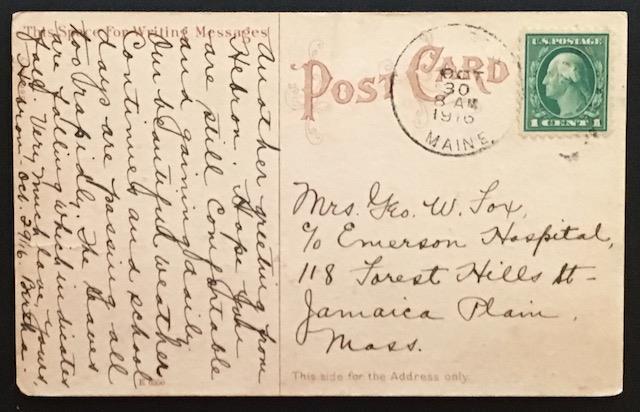 This Space For Writing Messages
POST CARD
OCT
30
8 AM
1916
MAINE
U.S. POSTAGE
1 CENT 1
Another greeting from
Hebron. Hope you
are still comfortable
and gaining daily.
Our beautiful weather
continues and school
days are passing all
too rapidly. The leaves
are falling which indicates
fall. Very much love, yours,
Hebron. Oct. 29/16. Bertha.
Mrs. Geo. W. Fox,
c/o Emerson Hospital,
118 Forest Hills St-
Jamaica Plain,
Mass.
This side for the Address only.